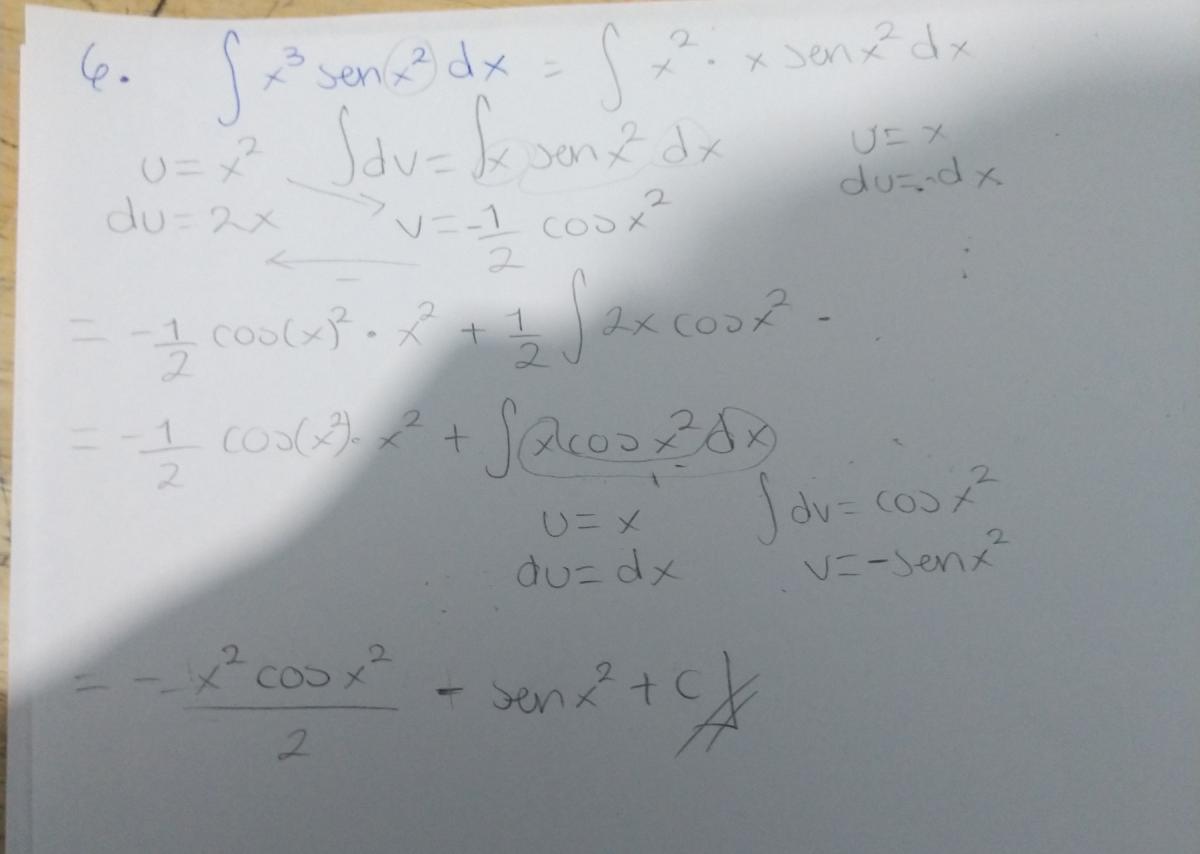 6. ∫ x³ sen x² dx = ∫ x² · x sen x² dx
u = x² ∫dv = ∫x sen x² dx u = x
du = 2x v = -1/2 cos x² du = -dx
= -1/2 cos(x)² · x² + 1/2 ∫ 2x cos x² -
= -1/2 cos(x²) · x² + ∫ x cos x² dx
u = x ∫ dv = cos x²
du = dx v = -sen x²
= - x² cos x² / 2 - sen x² + C